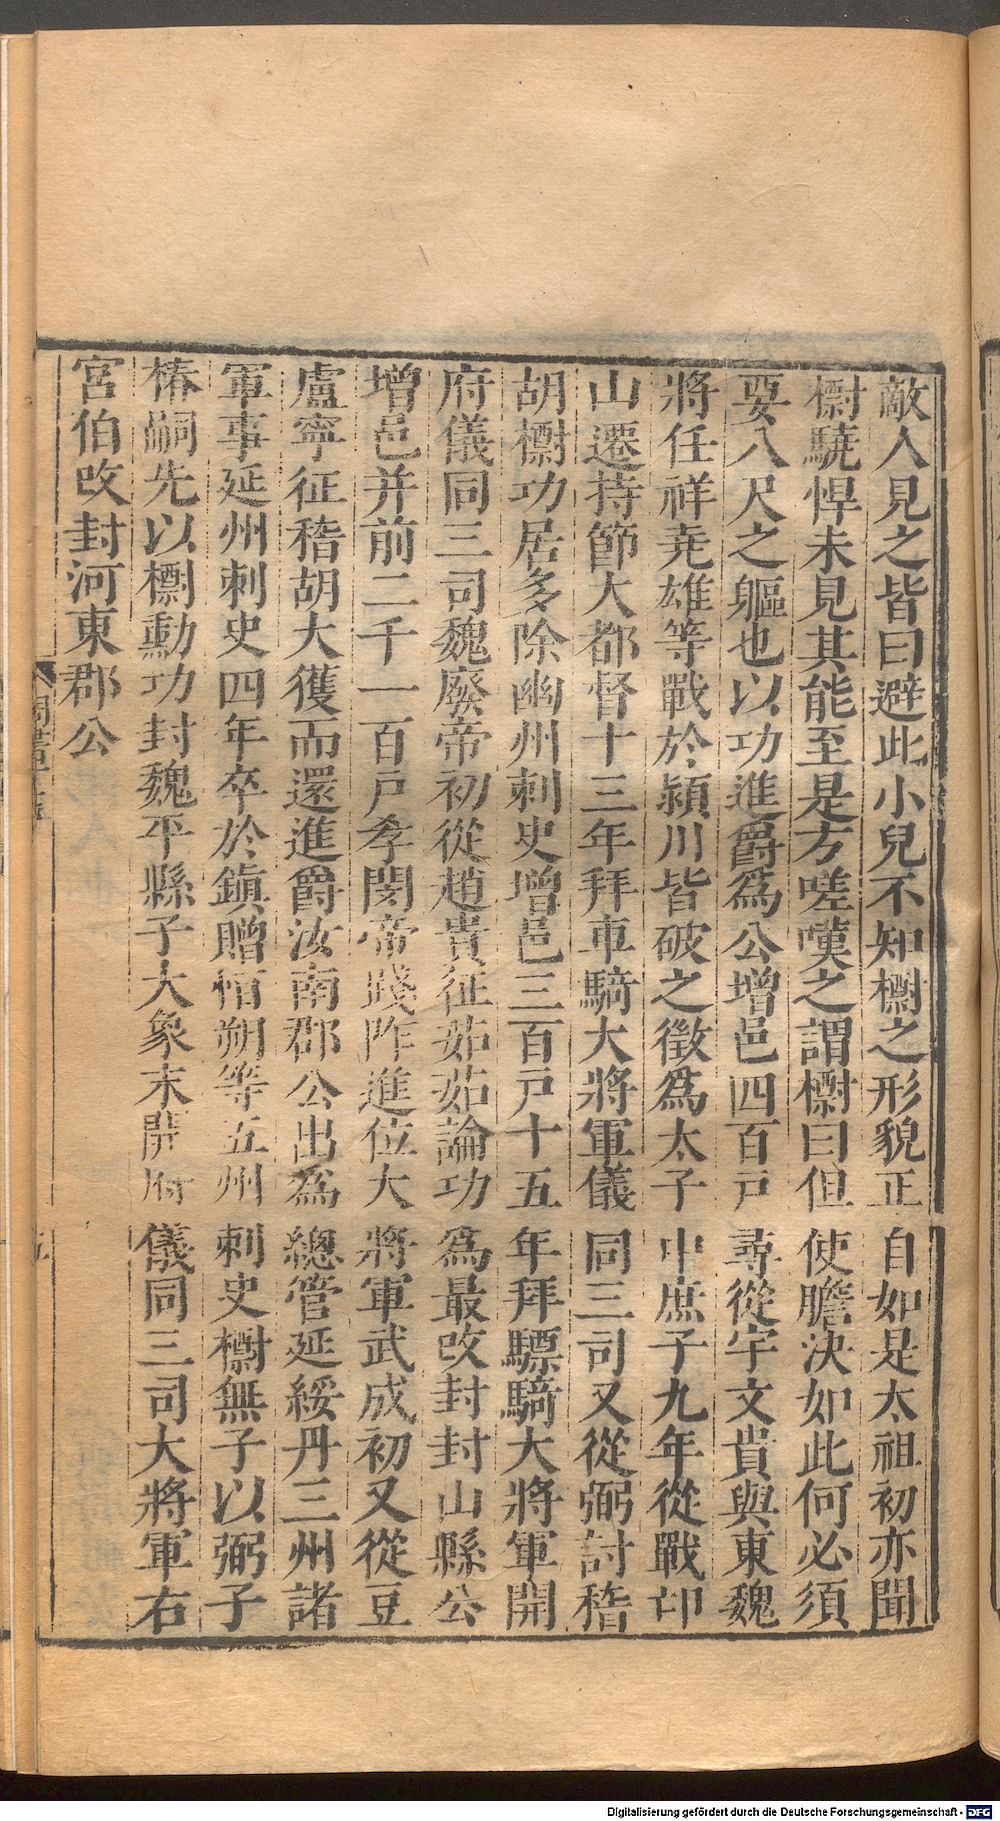 敵人見之皆曰避此小兒不知檦之形貌正自如是太祖初亦聞
檦驍悍未見其能至是方嗟嘆之謂檦曰但使膽決如此何必須
要八尺之軀也以功進爵爲公增邑四百戸尋從宇文貴與東魏
將任祥堯雄等戰於潁川皆破之徵爲太子中庶子九年從戰邙
山遷持節大都督十三年拜車騎大將軍儀同三司又從弼討稽
胡檦功居多除幽州刺史增邑三百戸十五年拜驃騎大將軍開
府儀同三司魏廢帝初從趙貴征茹茹論功爲最改封封山縣公
增邑并前二千一百戸孝閔帝踐阼進位大將軍武成初又從豆
盧寧征稽胡大獲而還進爵汝南郡公出爲總管延綏丹三州諸
軍事延州刺史四年卒於鎮贈恒朔等五州刺史檦無子以弼子
椿嗣先以檦勳功封魏平縣子大象末開府儀同三司大將軍右
宮伯改封河東郡公
周書十五
五
Digitalisierung gefördert durch die Deutsche Forschungsgemeinschaft - DFG